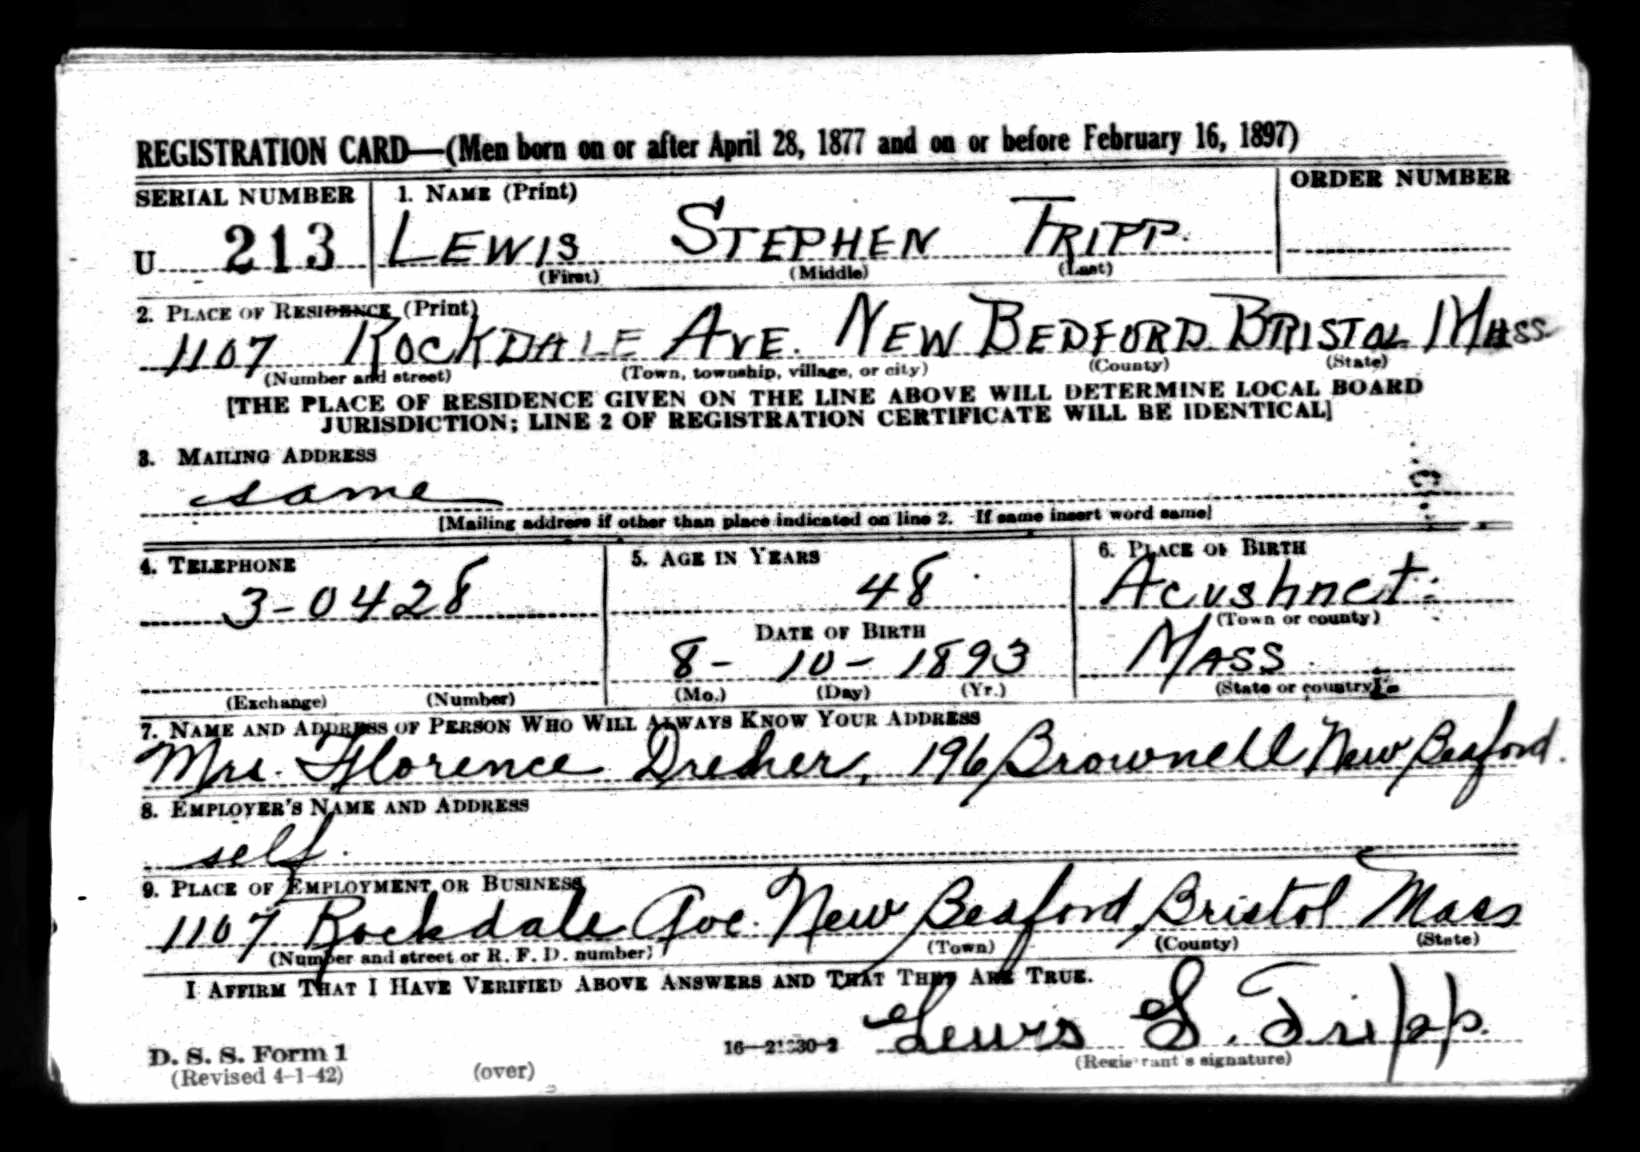 REGISTRATION CARD—(Men born on or after April 28, 1877 and on or before February 16, 1897)
SERIAL NUMBER 1. NAME (Print) ORDER NUMBER
U 213 LEWIS STEPHEN TRIPP.
(First) (Middle) (Last)
2. PLACE OF RESIDENCE (Print)
1107 ROCKDALE AVE. NEW BEDFORD BRISTOL MASS
(Number and street) (Town, township, village, or city) (County) (State)
[THE PLACE OF RESIDENCE GIVEN ON THE LINE ABOVE WILL DETERMINE LOCAL BOARD
JURISDICTION; LINE 2 OF REGISTRATION CERTIFICATE WILL BE IDENTICAL]
3. MAILING ADDRESS
same
[Mailing address if other than place indicated on line 2. If same insert word same]
4. TELEPHONE 5. AGE IN YEARS 6. PLACE OF BIRTH
3-0428 48 Acushnet
(Town or county)
DATE OF BIRTH
8- 10- 1893 MASS
(Exchange) (Number) (Mo.) (Day) (Yr.) (State or country)
7. NAME AND ADDRESS OF PERSON WHO WILL ALWAYS KNOW YOUR ADDRESS
Mrs. Florence Dreher, 196 Brownell New Bedford.
8. EMPLOYER'S NAME AND ADDRESS
self.
9. PLACE OF EMPLOYMENT OR BUSINESS
1107 Rockdale Ave. New Bedford, Bristol Mass
(Number and street or R. F. D. number) (Town) (County) (State)
I AFFIRM THAT I HAVE VERIFIED ABOVE ANSWERS AND THAT THEY ARE TRUE.
Lewis S. Tripp.
D. S. S. Form 1 (Registrant's signature)
(Revised 4-1-42) (over)